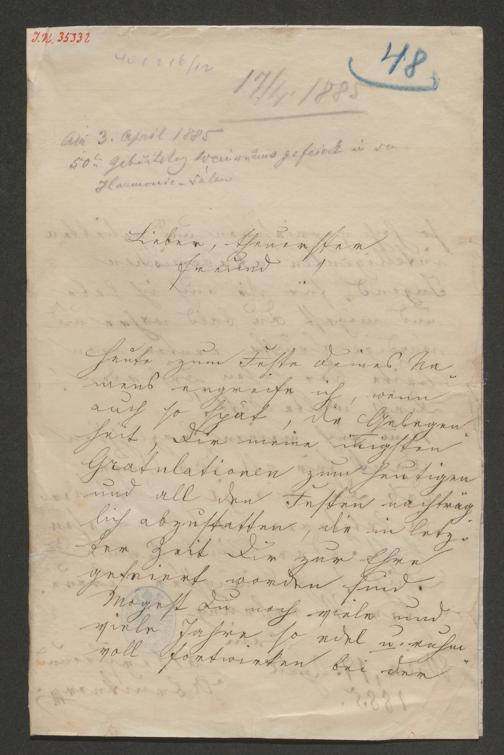 I.N. 35332
48
17/4. 1885
Am 3. April 1885
50ter Geburtstag gefeiert in den
Harmonie-Sälen
Lieber, theuerster
Freund
Heute zum Feste Deines Na-
mens ergreife ich, wenn
auch so spät, die Gelegen-
heit Dir meine innigsten
Gratulationen zum heutigen
und all den Festen nachträg-
lich abzustatten, die in letz-
ter Zeit Dir zur Ehre
gefeiert worden sind.
Mögest Du noch viele und
viele Jahre so edel u. ruhm-
voll fortwirken bei der